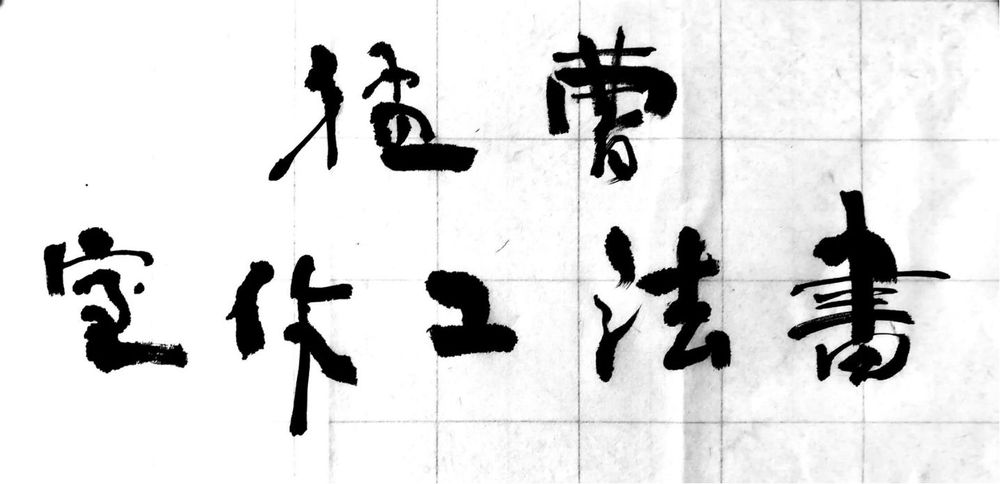 曹猛
書法工作室